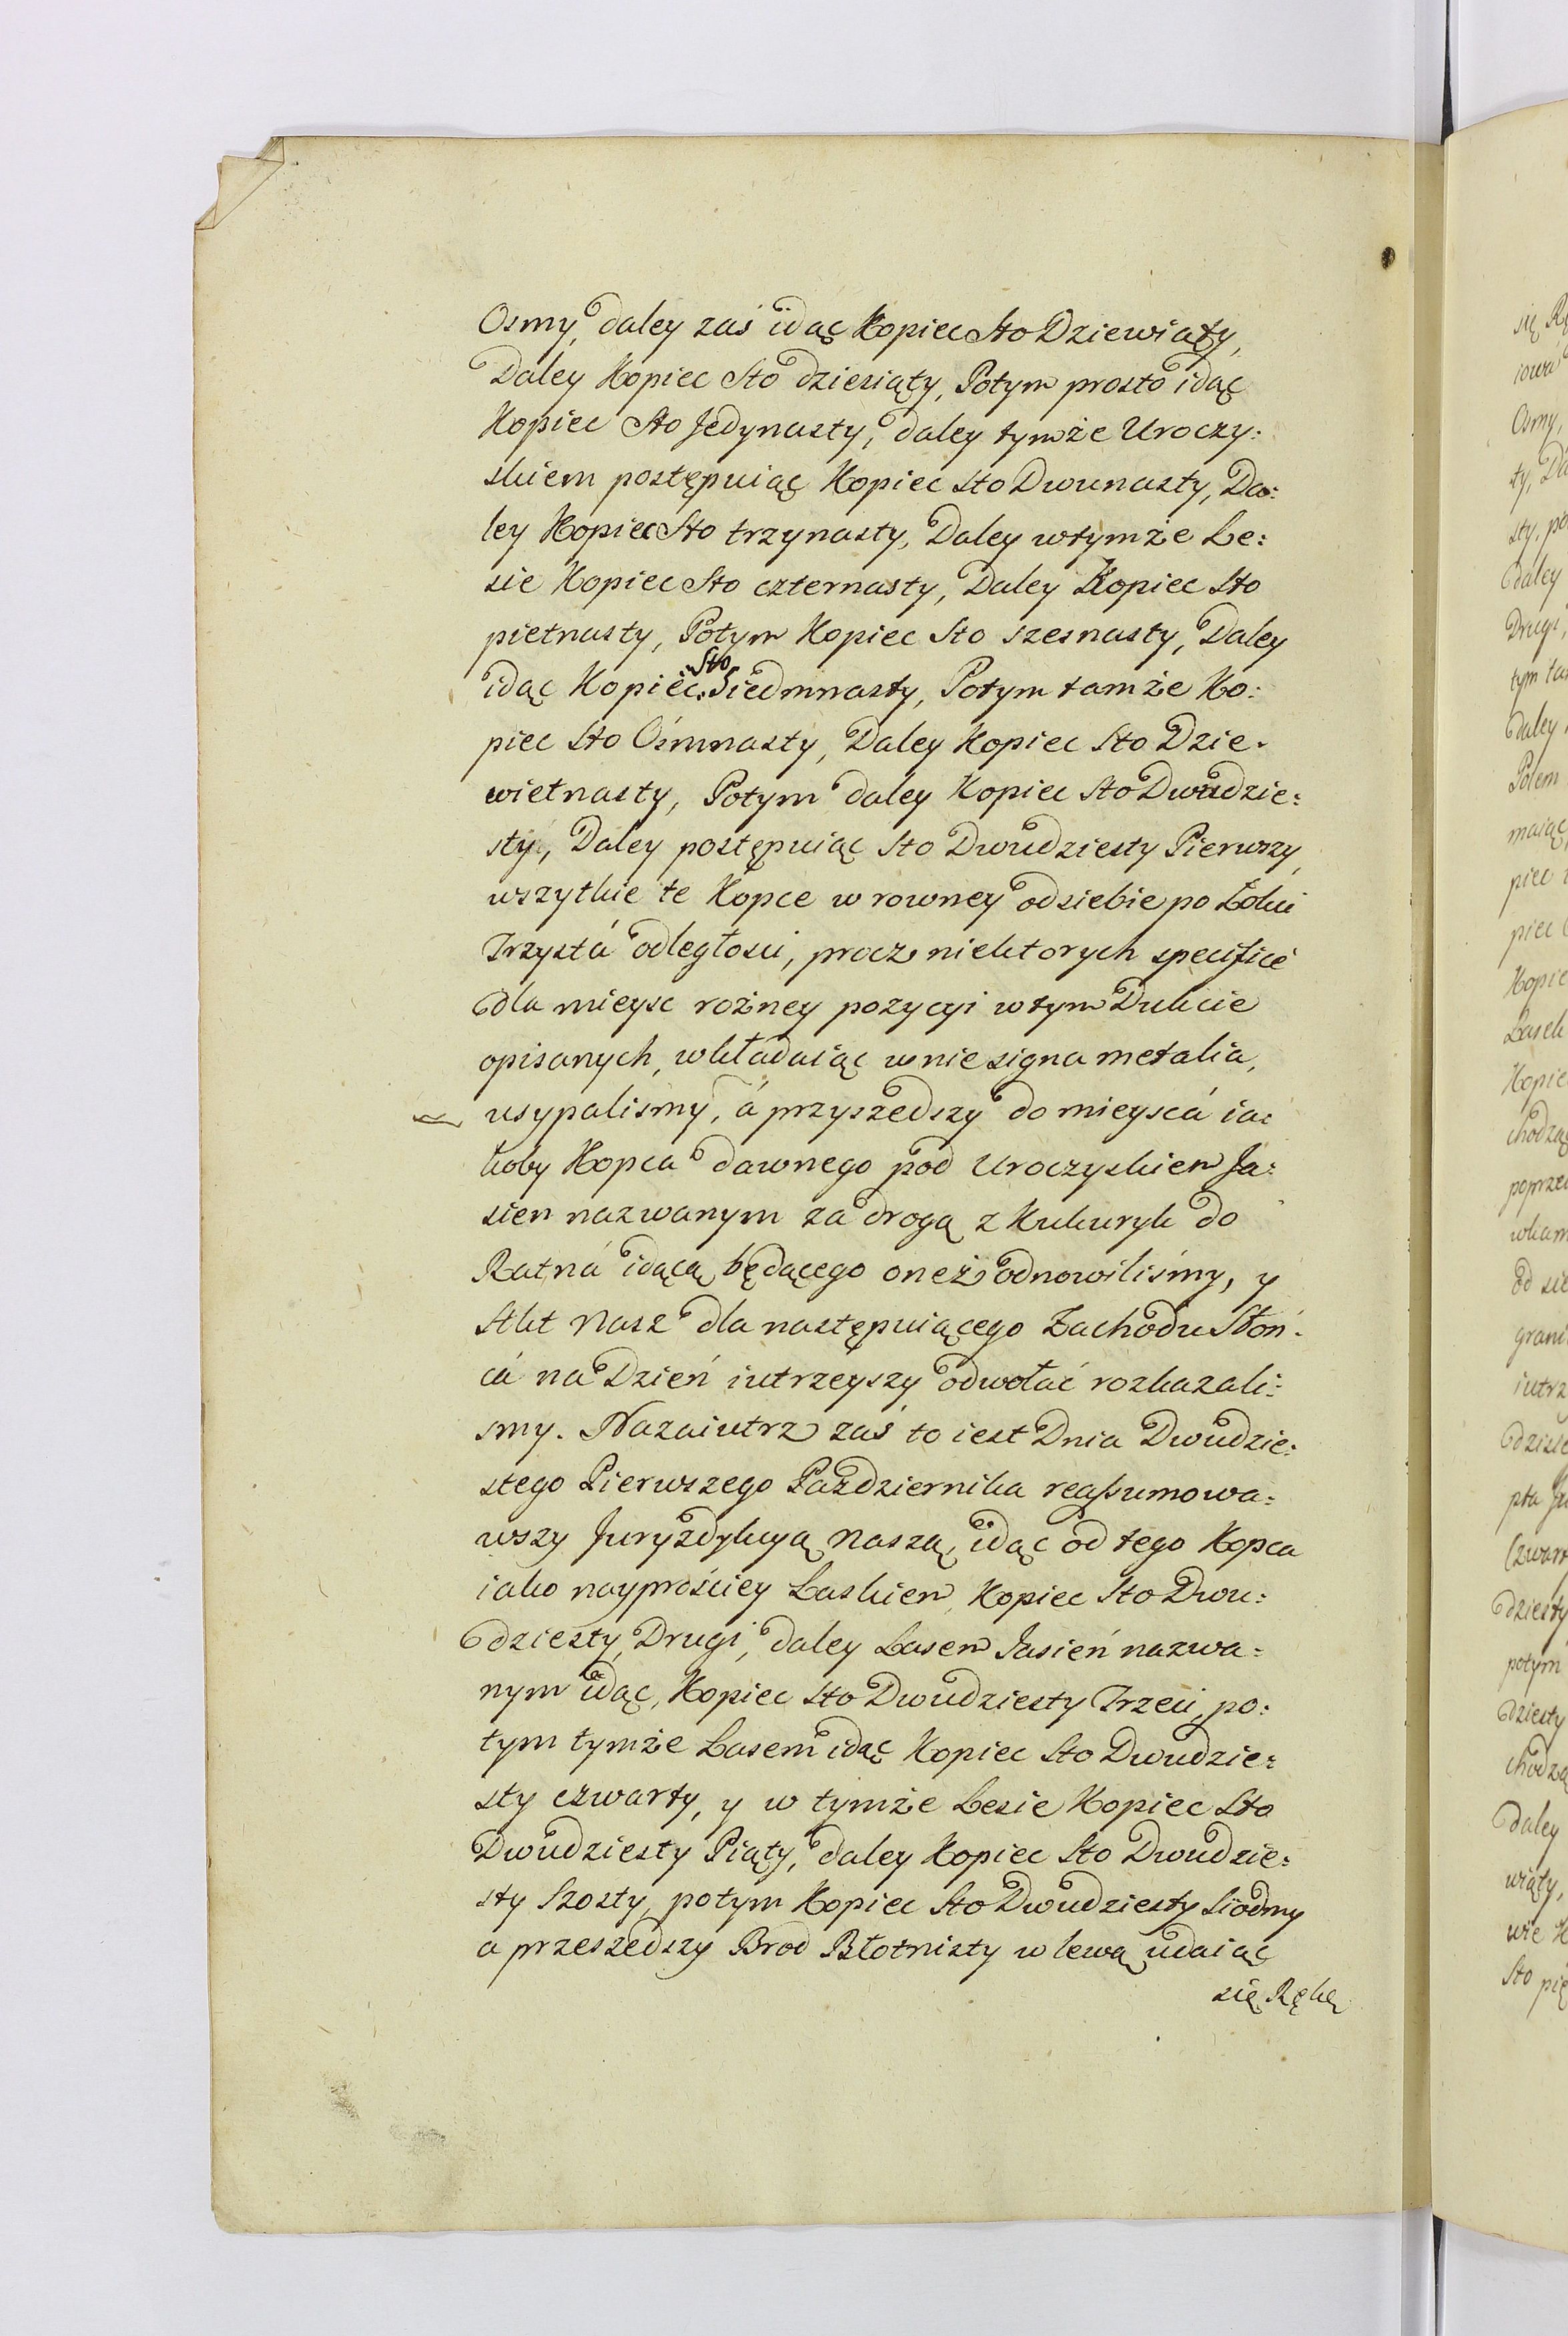 Osmy, daley zaś idąc Kopiec Sto Dziewiąty,
Daley Kopiec Sto dziesiąty, Potym prosto idąc
Kopiec Sto Jedynasty, daley tymże Uroczy:
skiem postępuiąc Kopiec Sto Dwunasty, Da:
ley Kopiec Sto trzynasty, Daley w tymże Le:
sie Kopiec Sto czternasty, Daley Kopiec Sto
pietnasty, Potym Kopiec Sto szesnasty, Daley
idąc Kopiec Sto Siedmnasty, Potym tamże Ko:
piec Sto Ośmnasty, Daley Kopiec Sto Dzie:
wietnasty, Potym daley Kopiec Sto Dwudzie:
sty, Daley postępuiąc Sto Dwudziesty Pierwszy,
wszytkie te Kopce w rowney od siebie po Łokci
Trzystá odległosci, procz niektorych specificè
dla mieysc rożney pozycyi w tym Dukcie
opisanych, wkładaiąc w nie signa metalia,
usypalismy, á przyszedszy do mieyscá ia:
koby Kopca dawnego pod Uroczyskiem Ja:
sien nazwanym za drogą z Kukuryk do
Ratná idącą będącego oneż odnowiliśmy, y
Akt Nasz dla następuiącego Zachodu Słoń:
cá na Dzień iutrzeyszy odwołać rozkazali:
smy. Nazaiutrz zaś to iest Dnia Dwudzie:
stego Pierwszego Października reassumowa:
wszy Juryzdykcyą Naszą, idąc od tego Kopca
iako nayprościey Laskiem, Kopiec Sto Dwu:
dziesty Drugi, daley Lasem Jasień nazwa:
nym idąc, Kopiec Sto Dwudziesty Trzeci, po:
tym tymże Lasem idąc Kopiec Sto Dwudzie:
sty czwarty, y w tymże Lesie Kopiec Sto
Dwudziesty Piąty, daley Kopiec Sto Dwudzie:
sty Szosty, potym Kopiec Sto Dwudziesty Siodmy
a przeszedszy Brod Błotnisty w lewą udaiąc
się Rękę